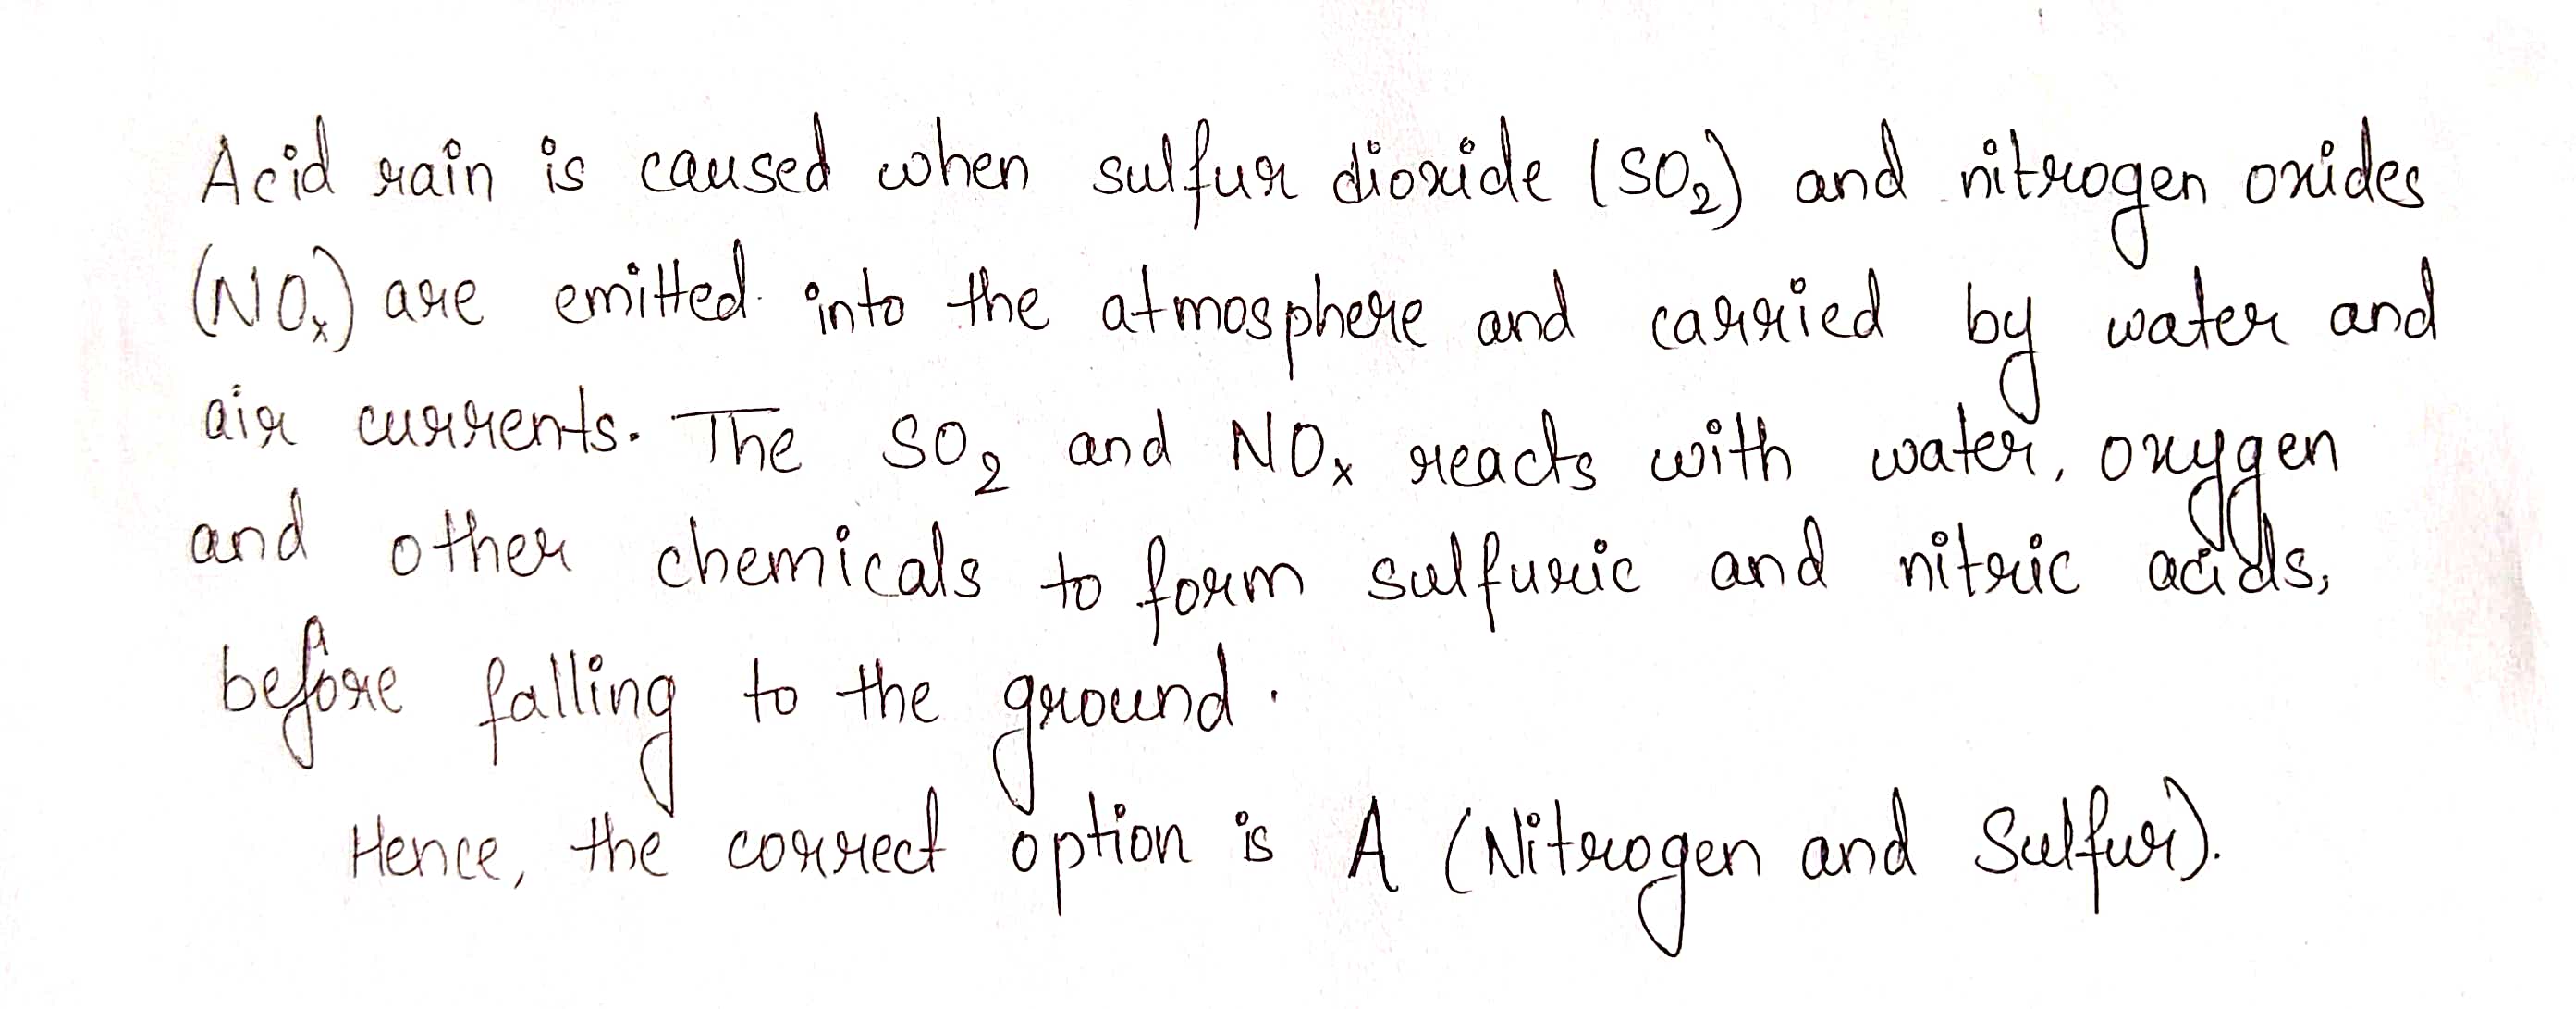 Acid rain is caused when sulfur dioxide (SO₂) and nitrogen oxides
(NOₓ) are emitted into the atmosphere and carried by water and
air currents. The SO₂ and NOₓ reacts with water, oxygen
and other chemicals to form sulfuric and nitric acids,
before falling to the ground.
Hence, the correct option is A (Nitrogen and Sulfur).